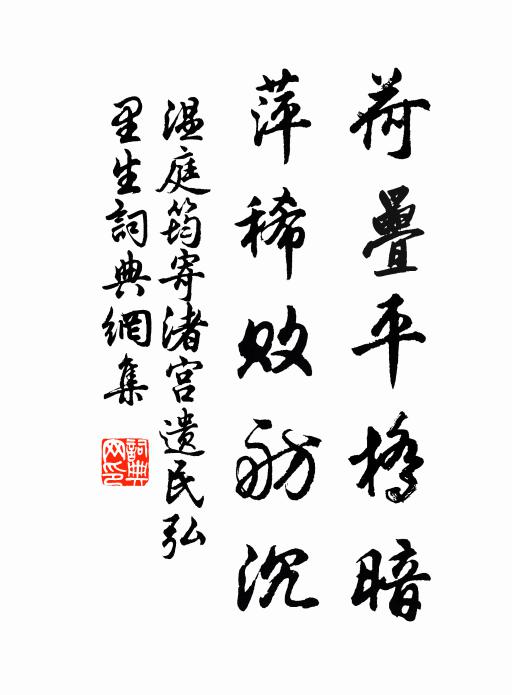 荷疊平橋暗
萍稀敗舫沉
温庭筠寄渚宫遗民弘
里生詞典網集
詞典
网印